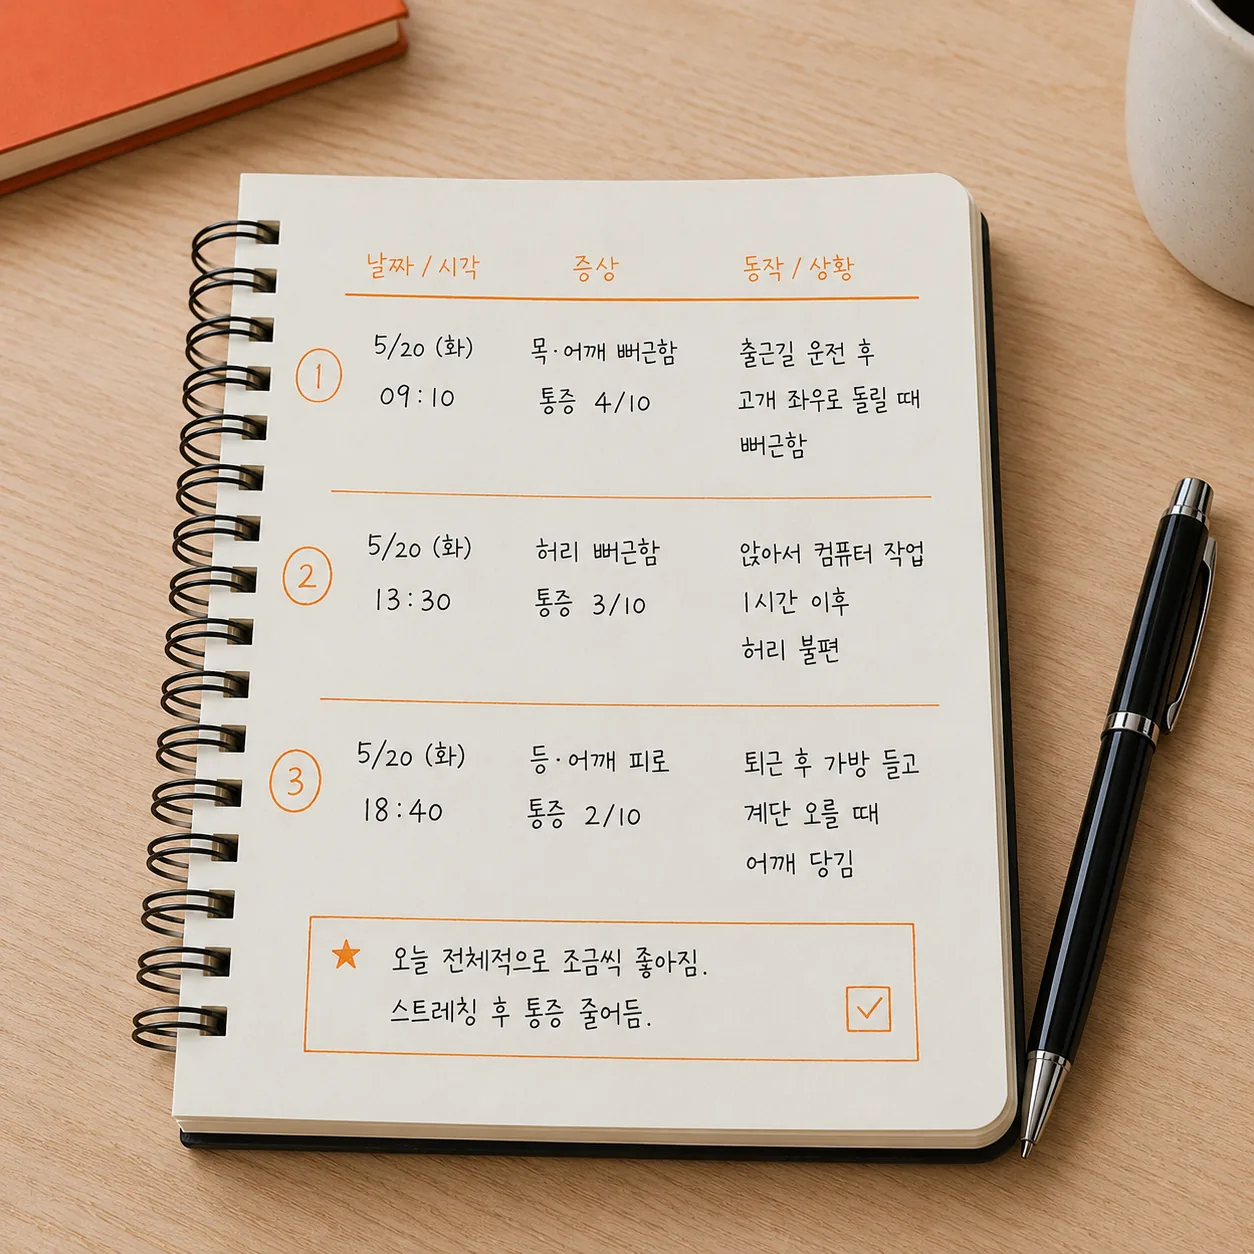 날짜 / 시각 증상 동작 / 상황
1
5/20 (화) 목·어깨 뻐근함 출근길 운전 후
09:10 통증 4/10 고개 좌우로 돌릴 때
뻐근함
2
5/20 (화) 허리 뻐근함 앉아서 컴퓨터 작업
13:30 통증 3/10 1시간 이후
허리 불편
3
5/20 (화) 등·어깨 피로 퇴근 후 가방 들고
18:40 통증 2/10 계단 오를 때
어깨 당김
★ 오늘 전체적으로 조금씩 좋아짐.
스트레칭 후 통증 줄어듬.